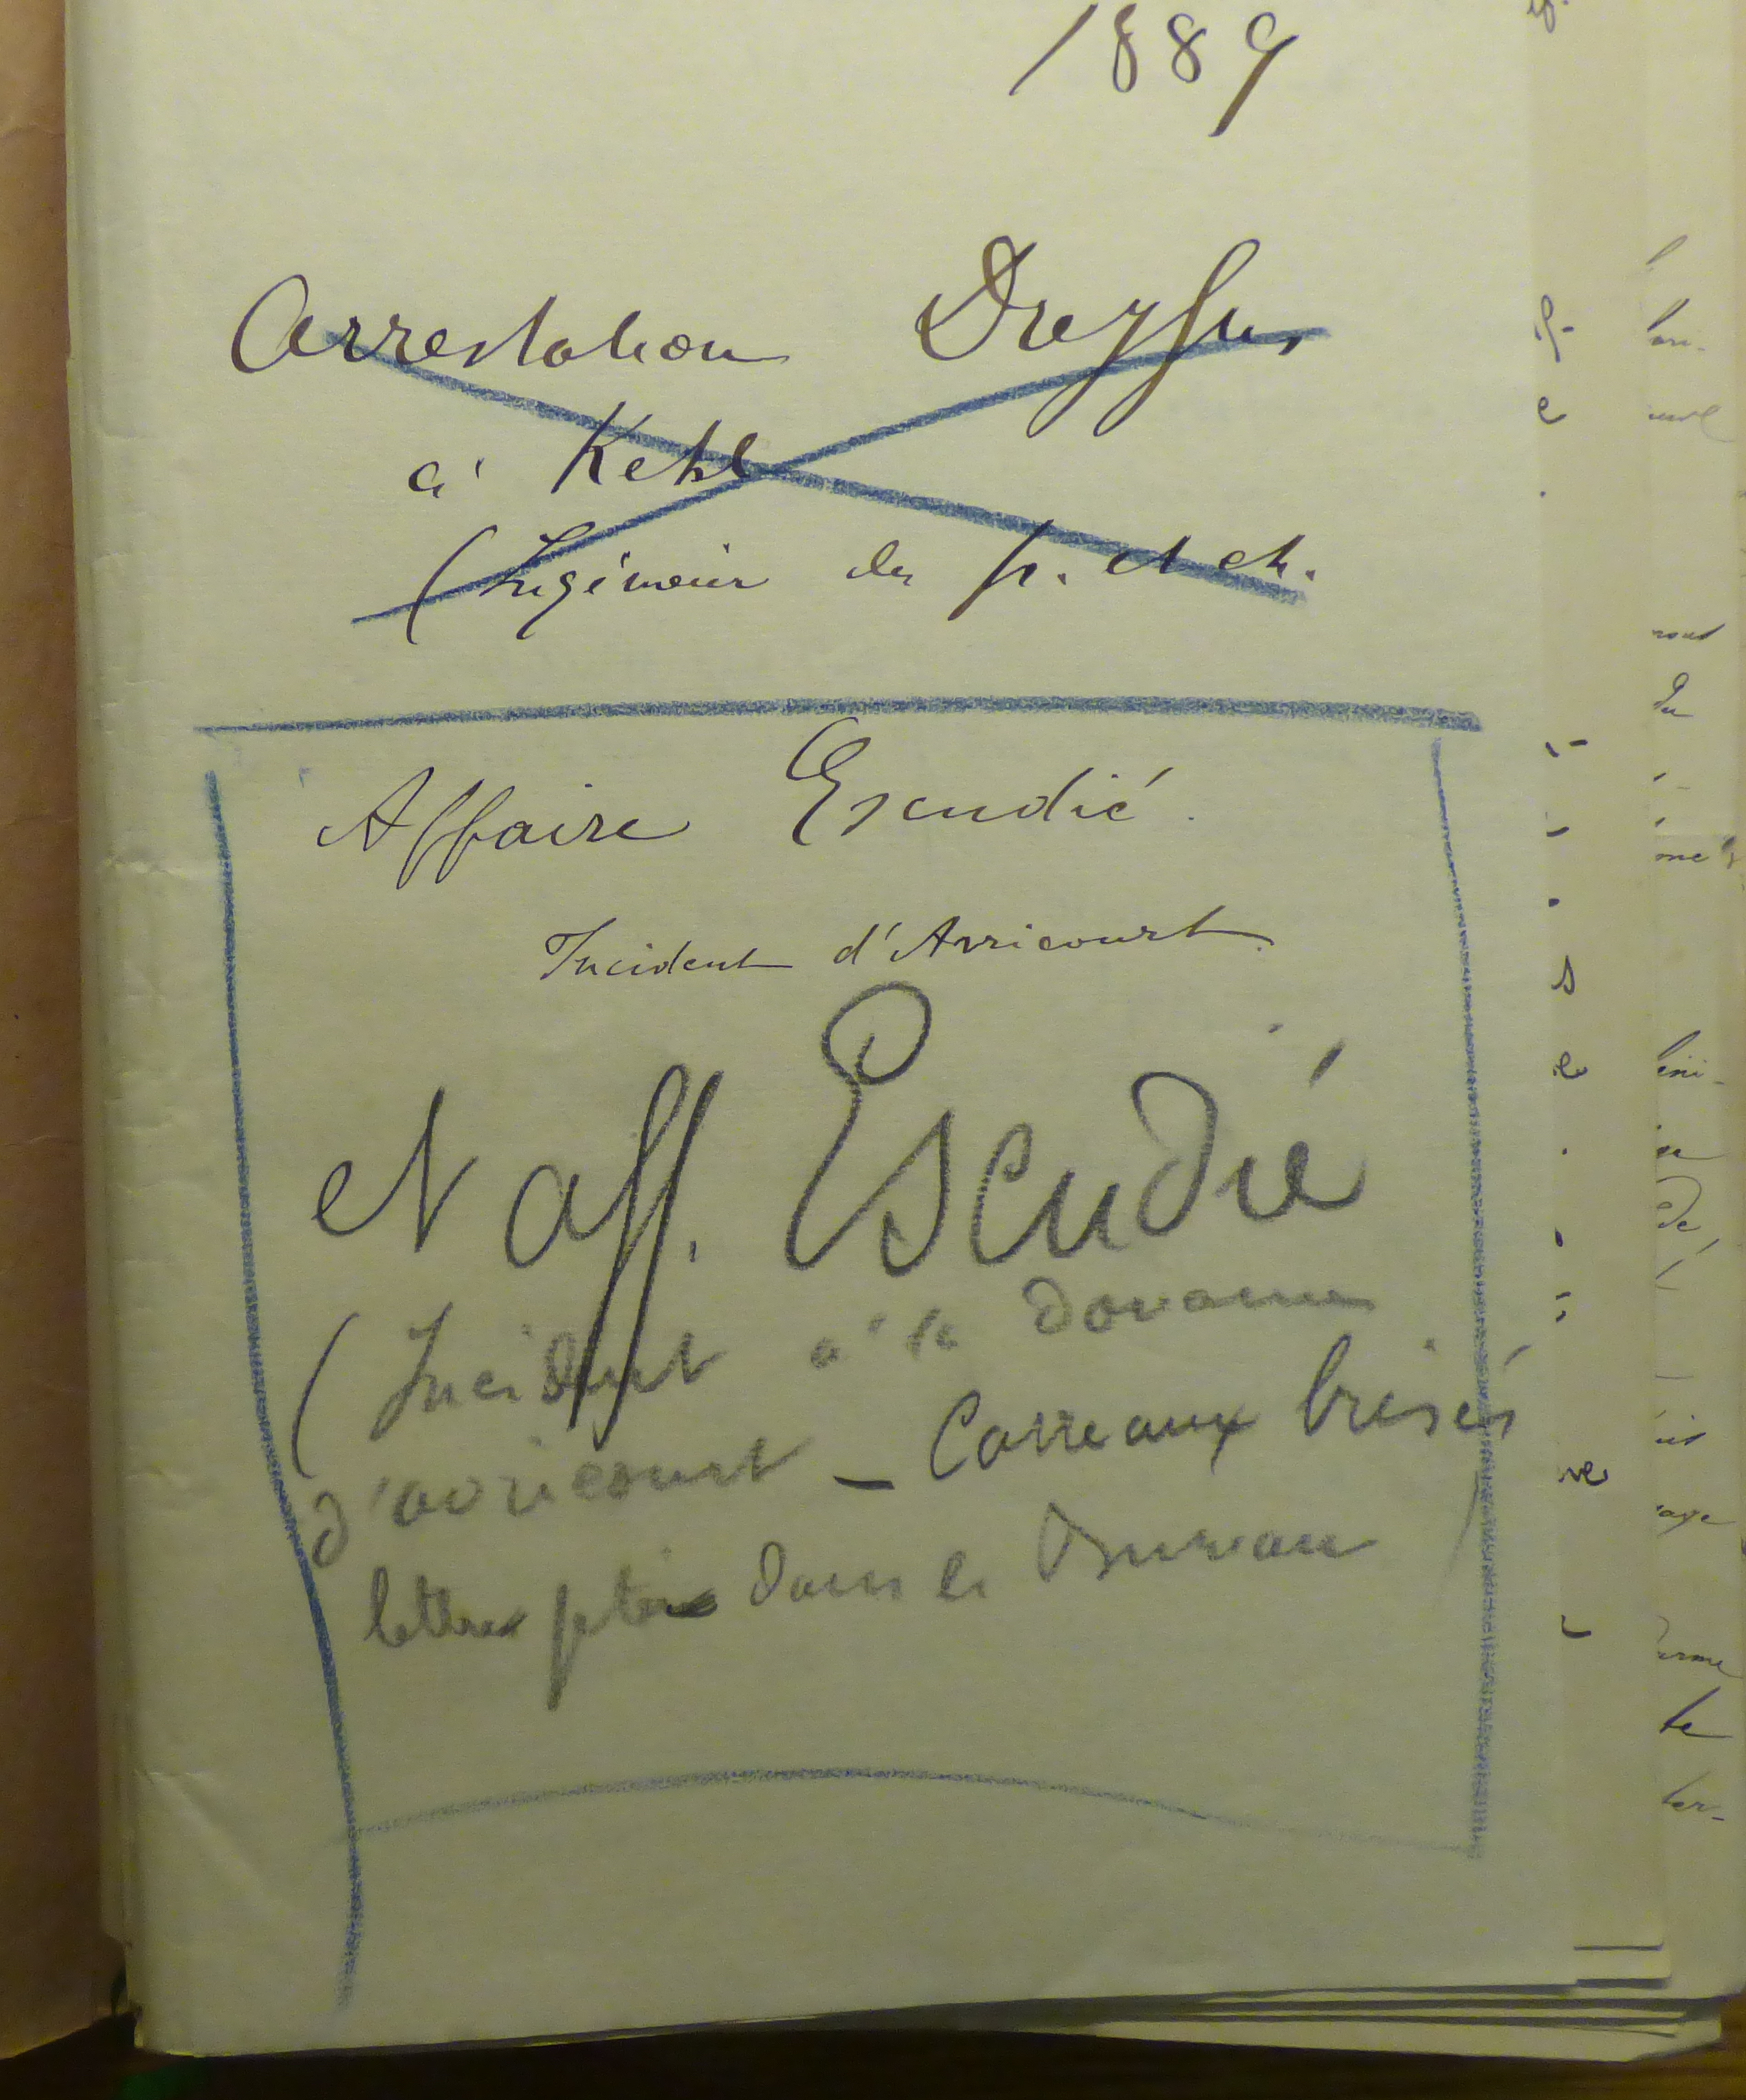 1889
Arrestation Dreyfus
à Kehl
(Ingénieur des p. et ch.
Affaire Escudié.
Incident d'Avricourt.
et aff. Escudié
(Incident à la douane
d'avricourt _ Carreaux brisés
lettres dans le Bureau